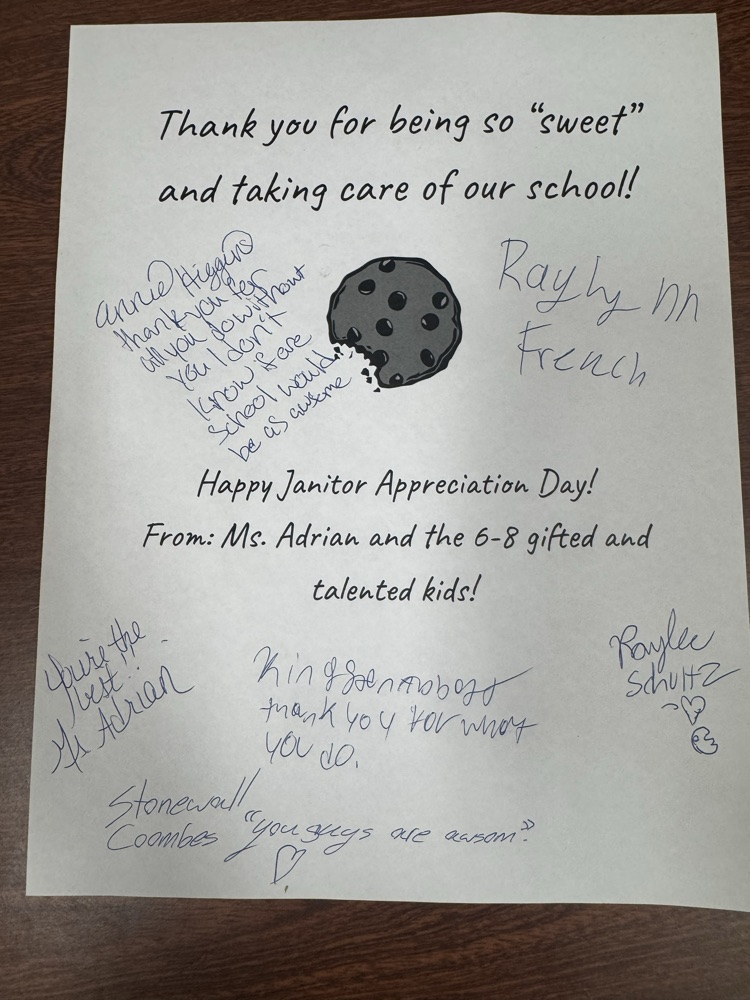 Thank you for being so “sweet”
and taking care of our school!
annie Higgins
thank you for
all you do without
you I don't
know if are
school would
be as awsome
Raylynn
French
Happy Janitor Appreciation Day!
From: Ms. Adrian and the 6-8 gifted and
talented kids!
You're the
best!
Ms Adrian
thank you for what
you do.
Raylee
Schultz
Stonewall
Coombes "you guys are awsom"